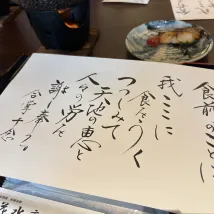 食前のことば
我ここに
食をうく
つつしみて
天地の恵と
人々の労を
謝し奉る
合掌 十念